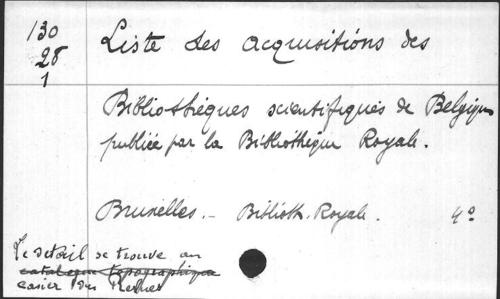 130
28
1
Liste des acquisitions des
Bibliothèques scientifiques de Belgique
publiée par la Bibliothèque Royale.
Bruxelles. - Biblioth. Royale. 4°
Le détail se trouve au
catalogue topographique
casier des Revues